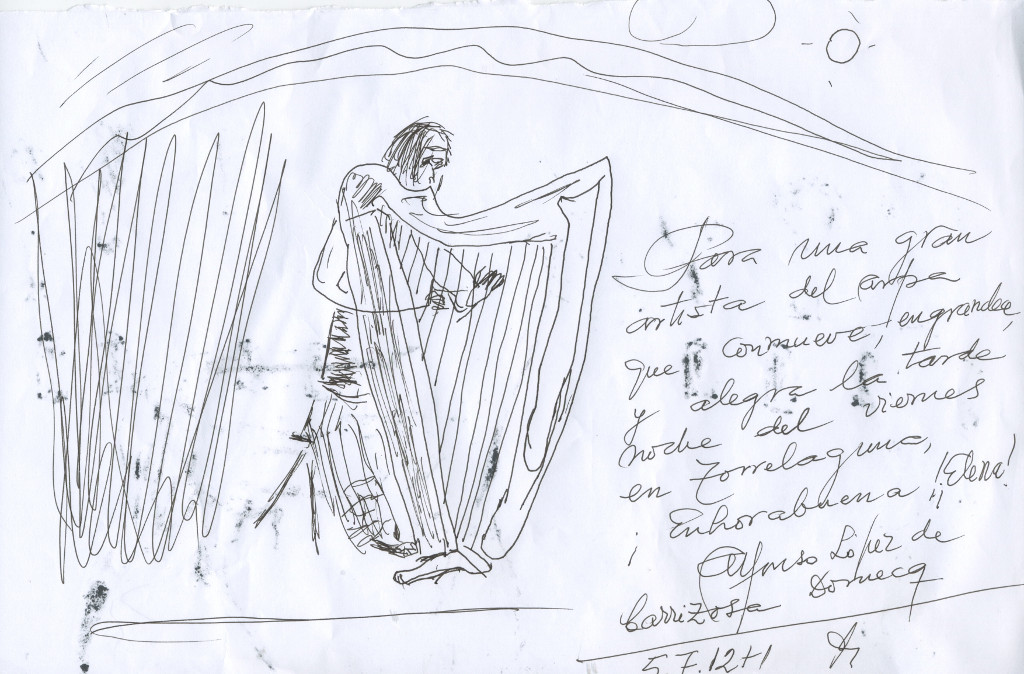 Para una gran
artista del arpa
que conmueve, engrandece,
y alegra la tarde
noche del viernes
en Torrelaguna,
¡Enhorabuena!! ¡Elena!
Alfonso López de
Carrizosa Domecq
5.7.12+1